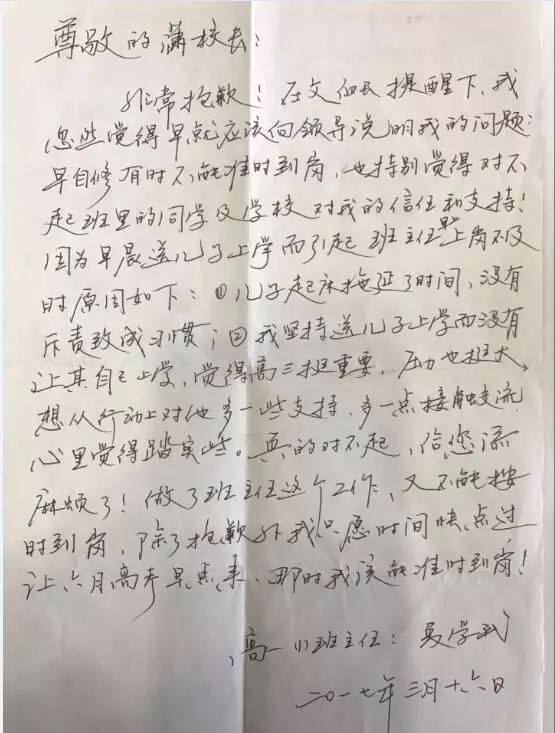 尊敬的潇校长：
非常抱歉！在文校长提醒下，我
忽然觉得早就应该向领导说明我的问题：
早自修有时不能准时到岗，也特别觉得对不
起班里的同学及学校对我的信任和支持！
因为早晨送儿子上学而引起班主任早上岗不及
时原因如下：①儿子起床拖延了时间，没有
斥责致成习惯；②我坚持送儿子上学而没有
让其自己上学，觉得高三挺重要，压力也挺大，
想从行动上对他多一些支持、多一点接触交流
心里觉得踏实些。真的对不起，
麻烦了！做了班主任这个工作，又不能按
时到岗，除了抱歉外我只愿时间快点过
让六月高考早点来，那时我该能准时到岗！
高一（1）班主任：夏学
二〇一七年三月十六日